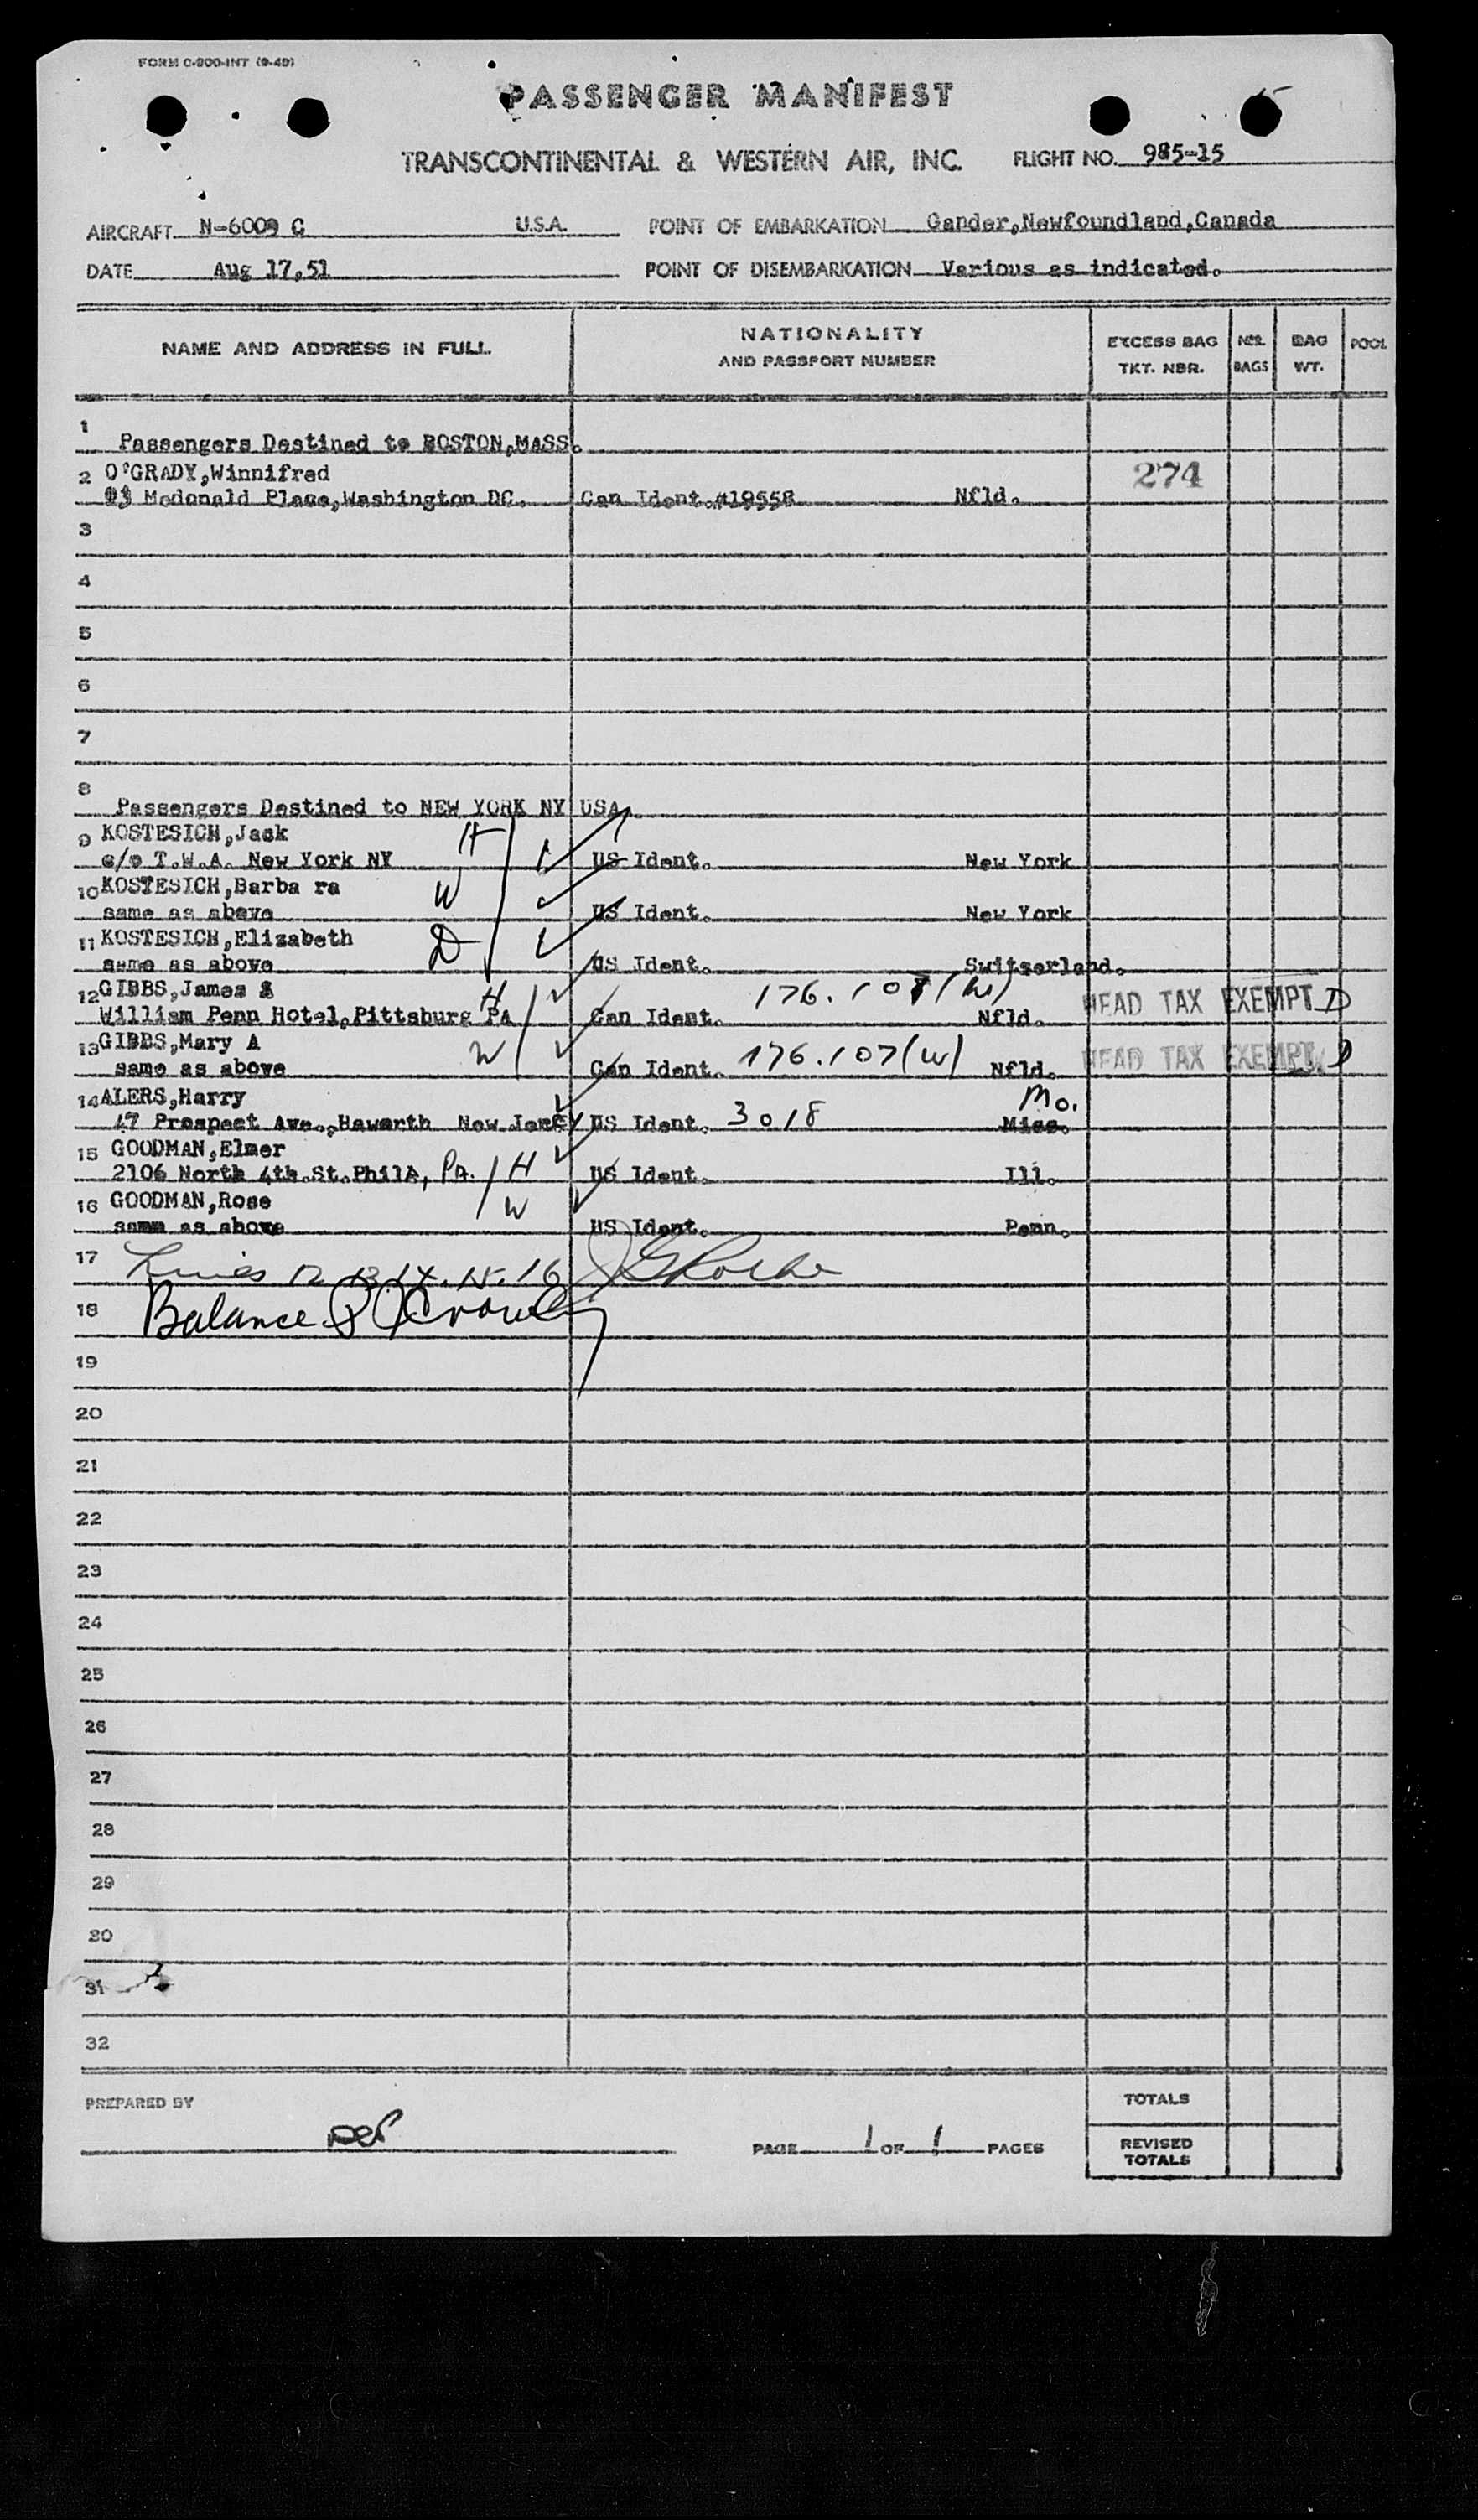 FORM C-900-INT (9-49)
PASSENGER MANIFEST
TRANSCONTINENTAL & WESTERN AIR, INC. FLIGHT NO. 985-15
AIRCRAFT N-6009 C U.S.A. POINT OF EMBARKATION Gander,Newfoundland,Canada
DATE Aug 17,51 POINT OF DISEMBARKATION Various as indicated.
NAME AND ADDRESS IN FULL NATIONALITY AND PASSPORT NUMBER EXCESS BAG TKT. NBR. NBR. BAGS BAG WT. POOL
1
Passengers Destined to BOSTON,MASS.
2 O'GRADY,Winnifred 274
Mcdonald Place,Washington DC. Can Ident.#19558 Nfld.
3
4
5
6
7
8
Passengers Destined to NEW YORK NY USA.
9 KOSTESICH,Jack H
c/o T.W.A. New York NY US Ident. New York
10 KOSTESICH,Barba ra W
same as above US Ident. New York
11 KOSTESICH,Elizabeth D
same as above US Ident. Switzerland.
12 GIBBS,James H 176.107(W) HEAD TAX EXEMPT D
William Penn Hotel,Pittsburg PA Can Ident. Nfld.
13 GIBBS,Mary A W 176.107(W) HEAD TAX EXEMPT
same as above Can Ident. Nfld.
14 ALERS,Harry Mo.
47 Prospect Ave.,Haworth New Jersey US Ident. 3018 Miss.
15 GOODMAN,Elmer
2106 North 4th.St.PhilA, PA. H US Ident. Ill.
16 GOODMAN,Rose W
same as above US Ident. Penn.
17 Lines 12 13 14. 15. 16
18 Balance
19
20
21
22
23
24
25
26
27
28
29
30
31
32
PREPARED BY TOTALS
PAGE 1 OF 1 PAGES REVISED TOTALS